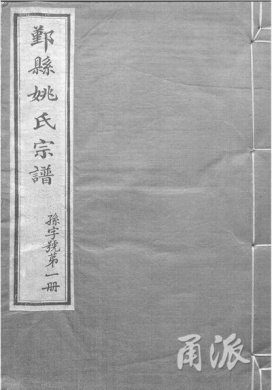 鄞縣姚氏宗譜
孫字號第一册
甬派